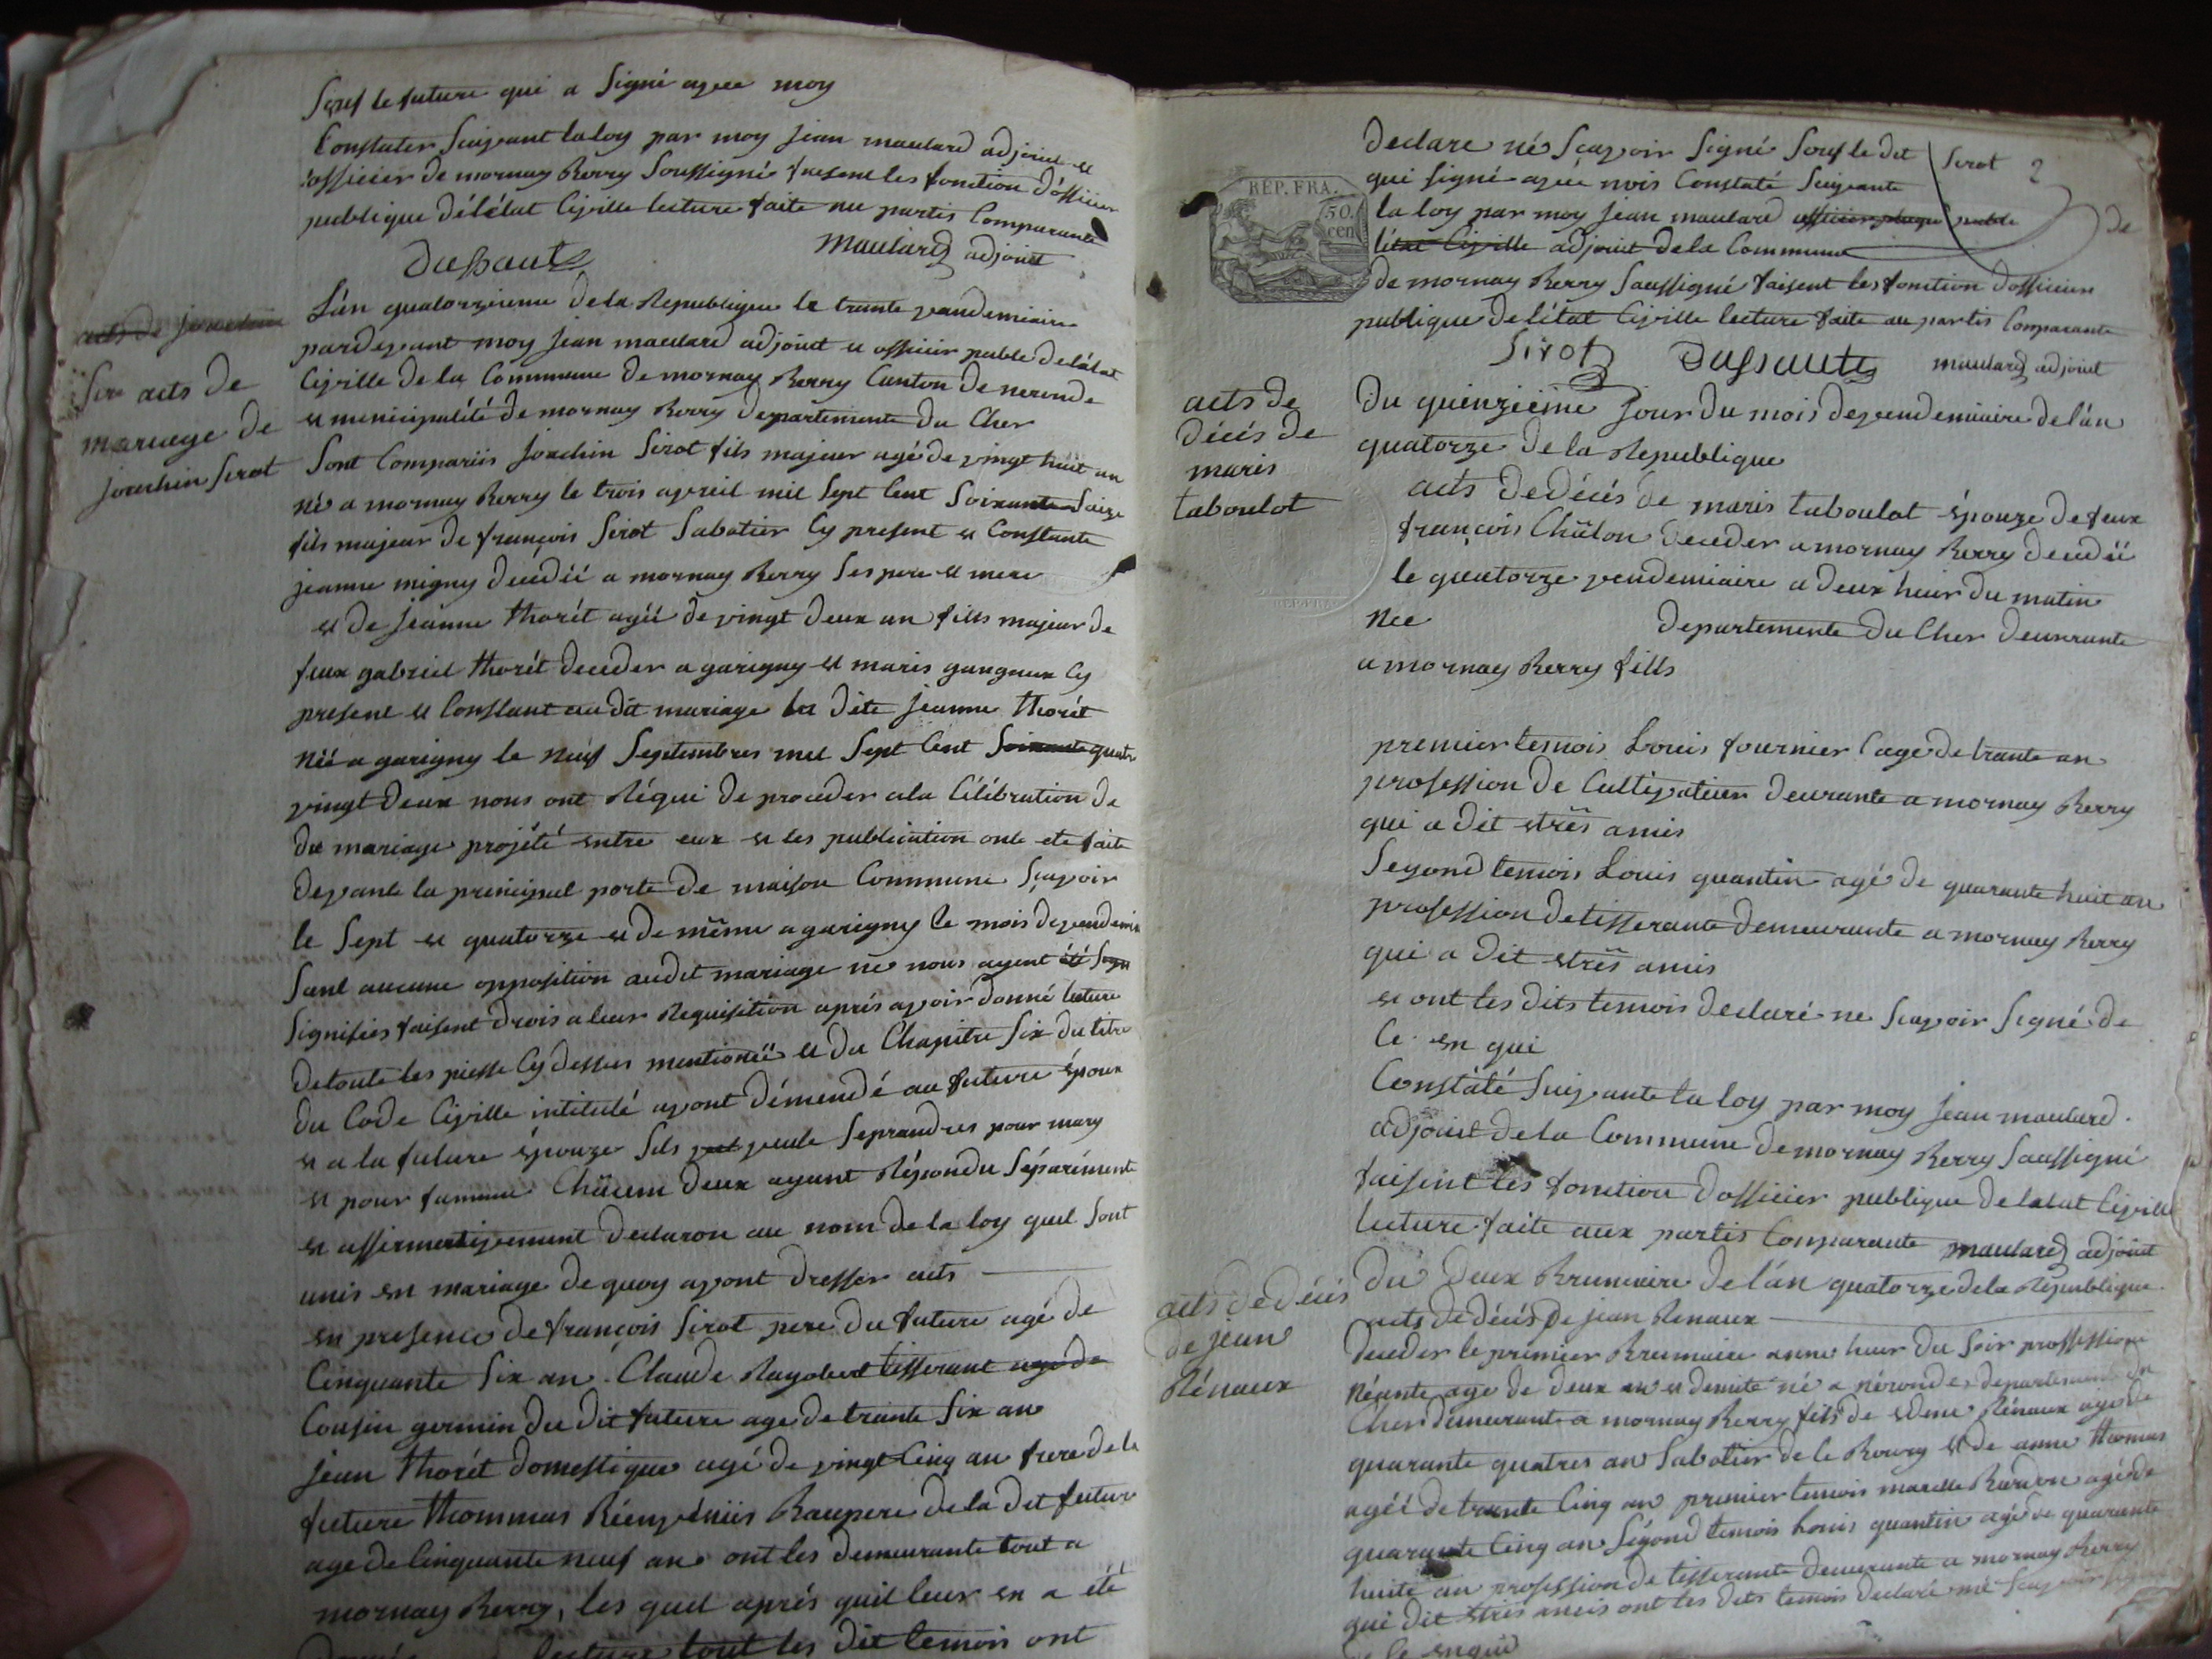 Souf le future qui a Signé avec moy
Constater Suivant la loy par moy jean maulard adjoint et
officier de mornay Berry Soussigné faisent les fonction d'officier
publique de l'état Civille lecture faite au partis Comparante
Dussault maulard adjoint
L'an quatorzieme de la Republique le trante vandemiaire
pardevant moy jean maulard adjoint et officier public de l'état
Civille de la Commune de mornay Berry Canton de neronde
et municipalité de mornay Berry departemente du Cher
Sont Compariis joachin Sirot fils majeur agé de vingt huit an
né a mornay Berry le trois avreil mil Sept Cent Soixante Saize
fils majeur de françois Sirot Sabotier Cy present et Constante
jeanne migny decedéé a mornay Berry Ses pere et mere
et de jeanne thorét agéé de vingt deux an fills majeur de
feux gabriel thorét deceder a garigny et maris gangneux Cy
present et Constant au dit mariage la dite jeanne thorét
néé a garigny le neuf Septembres mil Sept Cent Soixante quatre
vingt deux nous ont Réqui de proceder a la Célébration de
du mariage projété entre eux et les publication onte ete faite
devante la principal porte de maison Commune Sçavoir
le Sept et quatorze et de même a garigny le mois de vendemi
Sant aucune opposition audit mariage ne nous ayent été
Signifiés faisent Drois a leur Requisition aprés avoir donné lecture
de toute les piesse Cy dessus mentionéé et du Chapitre Six du titre
du Code Civille intitulé avont démendé au future époux
et a la future épouze Sils veule Seprandres pour mary
et pour famme Chäcun deux ayant Répondu Séparémente
et affirmativement declaron au nom de la loy quil Sont
unis en mariage de quoy avont dresser acts
en presence de françois Sirot pere du future agé de
Cinquante Six an. Claude Ragobert tisserant agé de
Cousin germin du dit future age de trante Six an
jean thorét domestique agé de vingt Cinq an frere de la
future thommas Bienvenüs Baupere de la dit future
age de Cinquante neuf an ont les demeurante tout a
mornay Berry, les quel aprés quil leur en a été
lecture tout les dit temois ont
acts de
Sur acts de
mariage de
joachin Sirot
REP. FRA.
50. cen
Declare né Sçavoir Signé Souf le dit Sirot
qui signé avec nois Constaté Suivante
la loy par moy jean maulard
l'état Civille adjoint de la Commune de
de mornay Berry Saussigné faisent les fonction d'officier
publique de l'état Civille lecture faite au partis Comparante
Sirot Dussault maulard adjoint
acts de
décés de
maris
taboulot
Du quinziéme jour du mois de vendemiaire de l'an
quatorze de la Republique
acts de décés de maris taboulot épouze de feux
françois Châlon deceder a mornay Berry decedéé
le quatorze vendemiaire a deux heur du matin
Nee departemente du Cher
a mornay Berry fills
premier temois Louis fournier l'age de trante an
profession de Cultivateur a mornay Berry
qui a dit etrés amis
Segond temois Louis quantin agé de quarante huit an
profession de tisserante demeurante a mornay Berry
qui a dit etrés amis
et ont les dits temois declaré ne Sçavoir Signé de
Ce en qui
Constäté Suivante la loy par moy jean maulard.
adjoint de la Commune de mornay Berry Saussigné
faisent les fonction d'officier publique de l'état Civille
lecture faite aux partis Comparante maulard adjoint
acts de décés
de jean
Rénaux
du deux Brumaire de l'an quatorze de la Republique.
acts de décés de jean Renaux
deceder le premier Brumaire heur du Soir proffession
Néante age de deux an et demite né a néronde departement du
Cher demeurante a mornay Berry fils de edme Rénaux agé de
quarante quatres an Sabotier de le Bourg et de anne thomas
agéé de trante Cinq an premier temois agé de
quarante Cinq an Ségond temois Louis quantin agé de quarante
huite an profession de tisserante a mornay Berry
qui dit etrés amis ont les dits temois declaré né Sçavoir
de Ce enqui